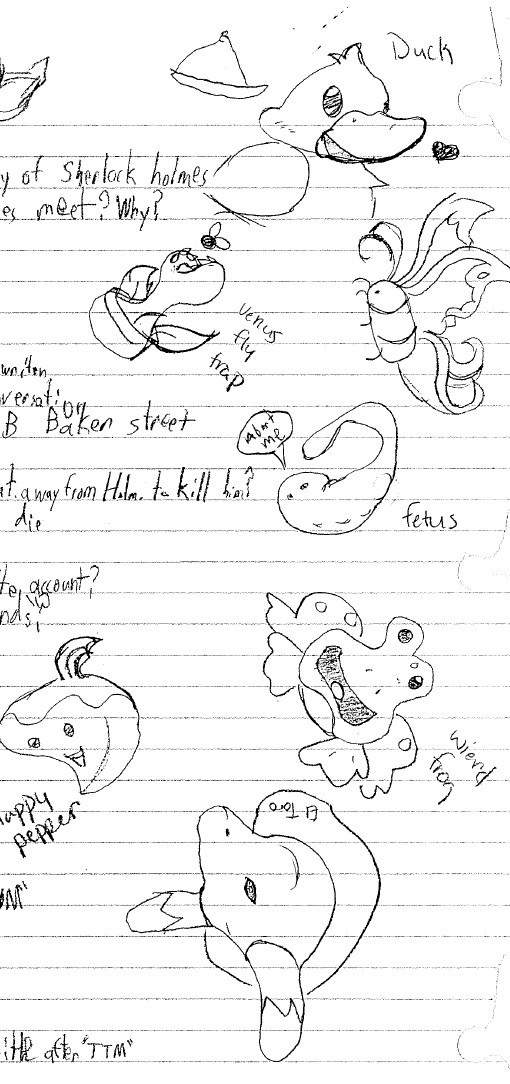 Duck
y of Sherlock holmes
es meet? Why?
Venus
fly
trap
on
B Baker street
About
me
away from Holm. to kill him?
die
fetus
account?
nds,
wierd
frog
happy
pepper
El Toro
after "TTM"